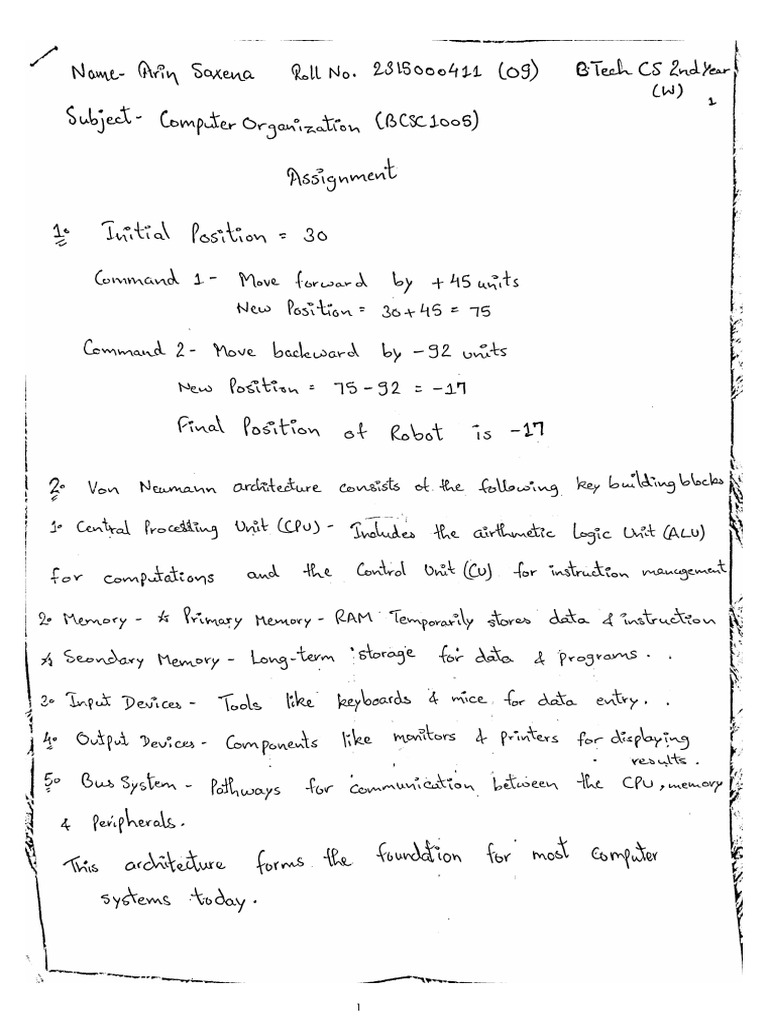 Name- Arin Saxena Roll No. 2315000411 (09) BTech CS 2nd Year
(W) 1
Subject- Computer Organization (BCSC1005)
Assignment
1. Initial Position = 30
Command 1 - Move forward by +45 units
New Position = 30+45 = 75
Command 2 - Move backward by -92 units
New Position = 75-92 = -17
Final Position of Robot is -17
2. Von Neumann architecture consists of the following key building blocks
1. Central Processing Unit (CPU) - Includes the airthmetic Logic Unit (ALU)
for computations and the Control Unit (CU) for instruction management
2. Memory - * Primary Memory - RAM Temporarily stores data & instruction
* Seondary Memory - Long-term storage for data & programs.
3. Input Devices - Tools like keyboards & mice for data entry.
4. Output Devices - Components like monitors & printers for displaying
results.
5. Bus System - Pathways for communication between the CPU, memory
& Peripherals.
This architecture forms the foundation for most computer
systems today.
1